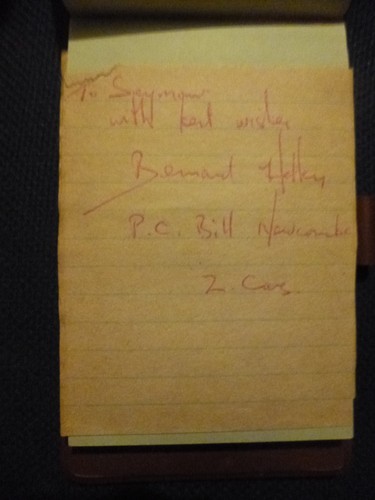 To Seymour
with best wishes
Bernard Holley
P.C. Bill Newcombe
Z. Cars